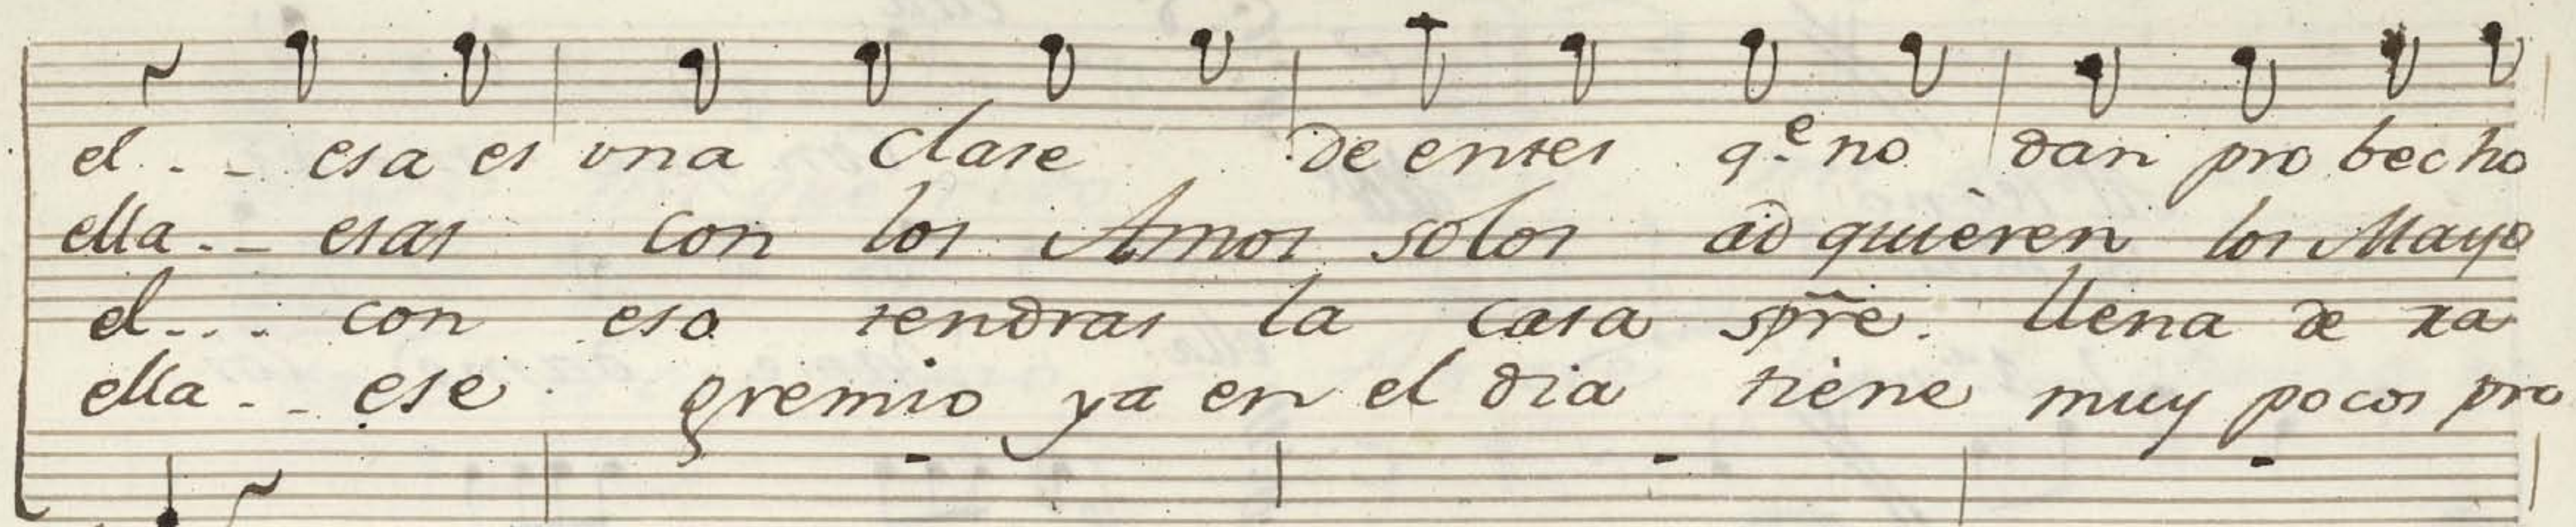 el - - esa es vna clase de entes q.e no dan pro becho
ella - - esas con los Amos solos ad quieren los Mayo
el - - - con eso tendras la casa spre. llena de ra
ella - - ese gremio ya en el dia tiene muy pocos pro